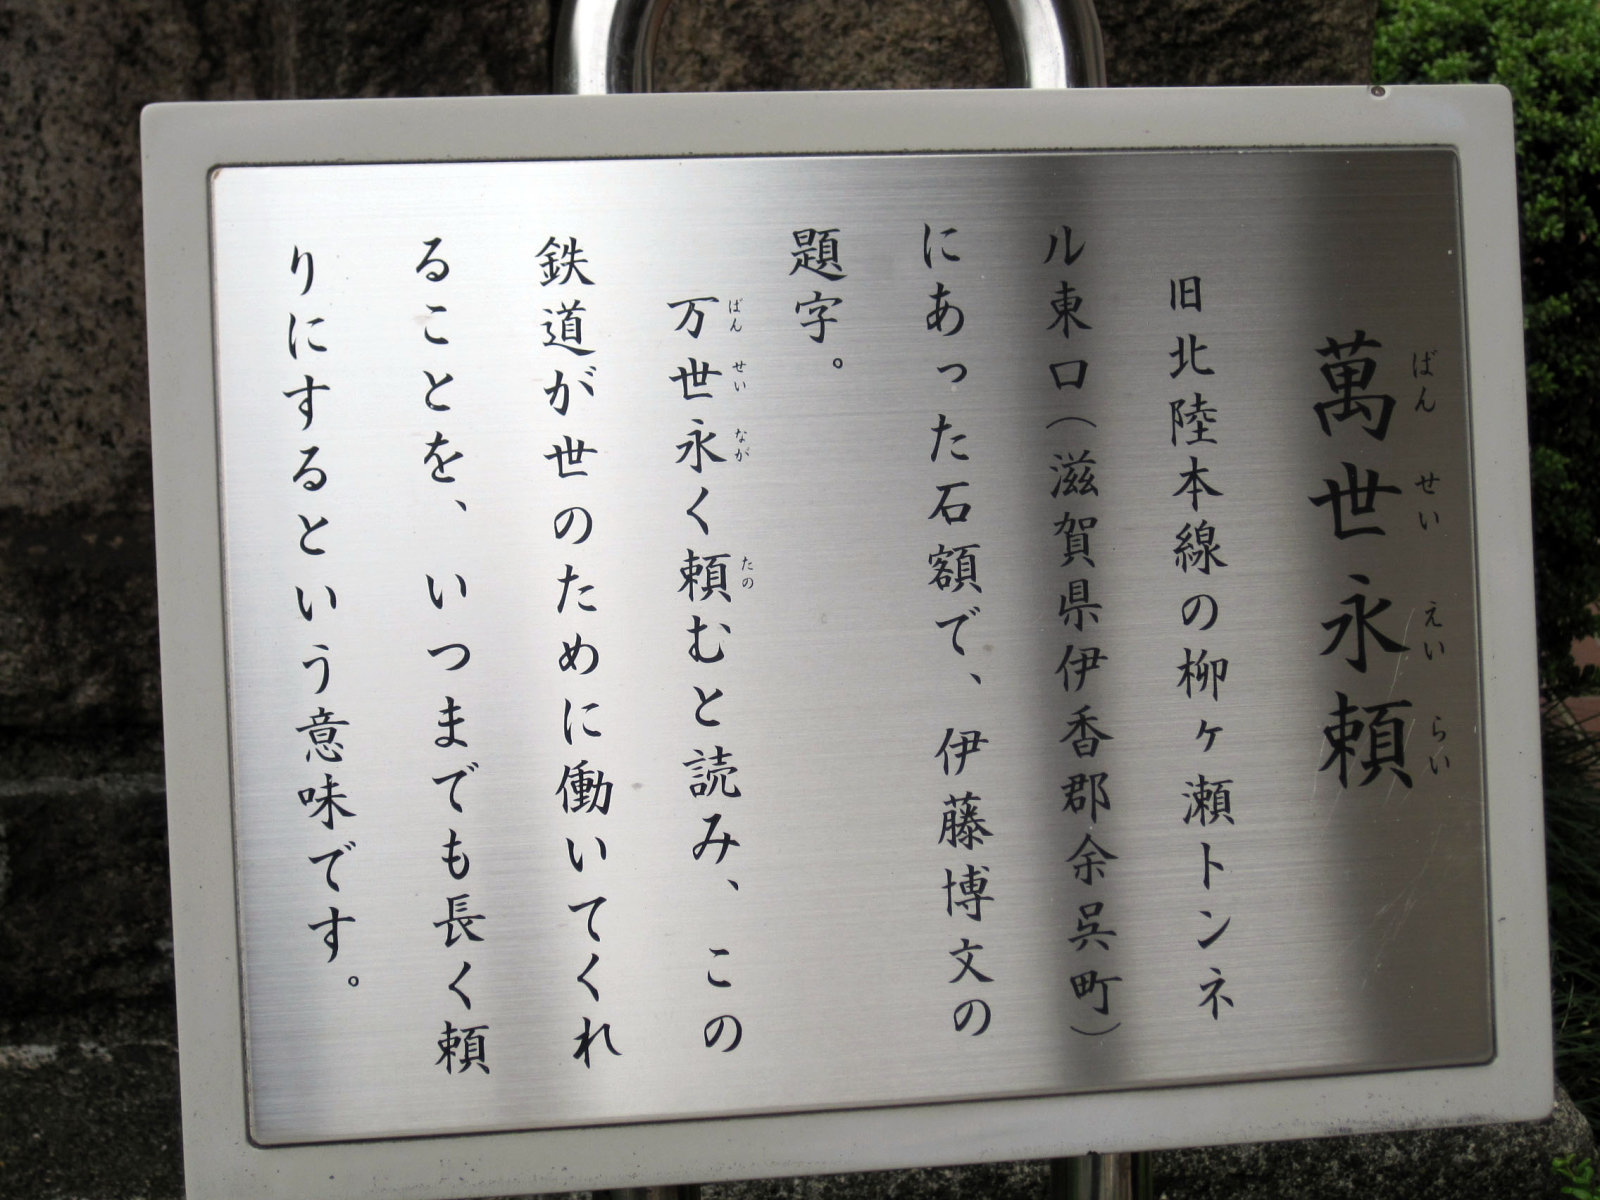 萬世永頼
ばん せい えい らい
旧北陸本線の柳ヶ瀬トンネ
ル東口（滋賀県伊香郡余呉町）
にあった石額で、伊藤博文の
題字。
万世永く頼むと読み、この
ばん せい なが たの
鉄道が世のために働いてくれ
ることを、いつまでも長く頼
りにするという意味です。